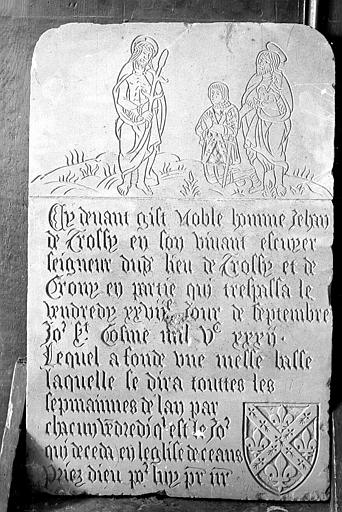 Cy devant gist Noble homme Jehan
de Trossy en son vivant escuyer
seigneur dudt lieu de Trossy et de
Crouy en partie qui trespassa le
vendredy xxviie jour de septembre
Jor St Cosme mil Vc xxxij.
Lequel a fonde une messe basse
laquelle se dira touttes les
sepmaines de lan par
chacun vendredi qi est le Jor
qui deceda en leglise de ceans
Priez dieu por luy